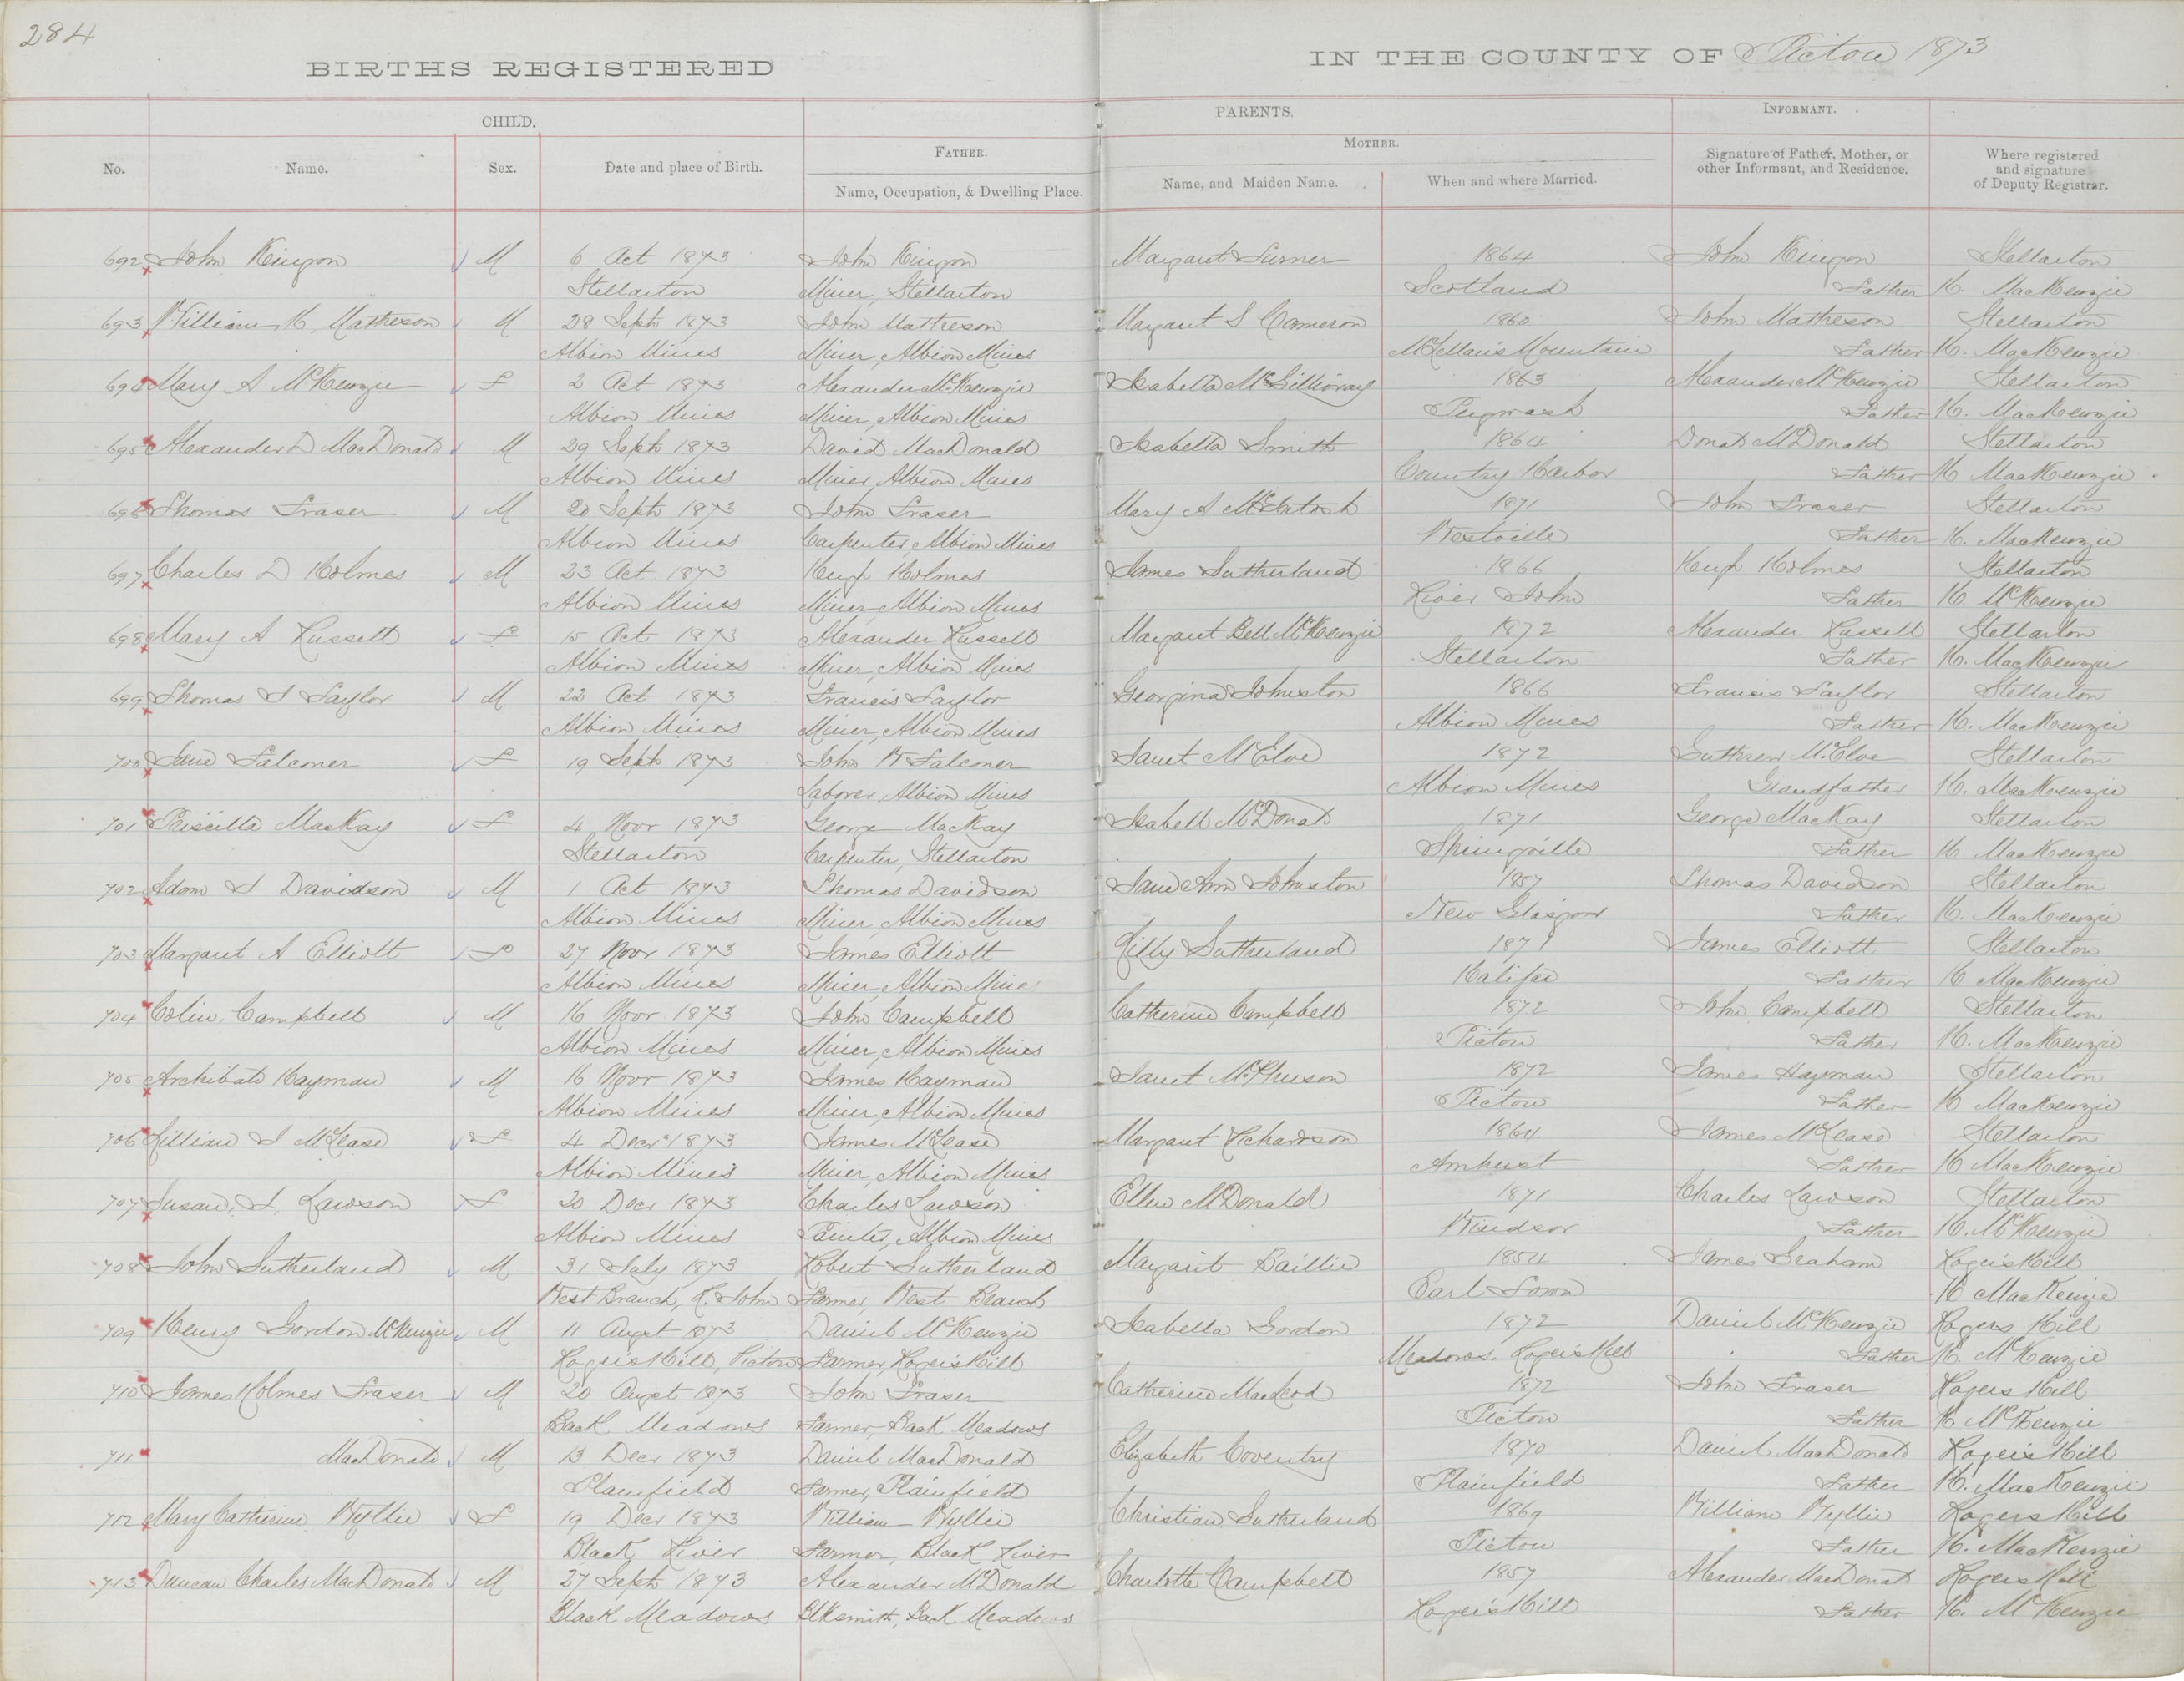 284
BIRTHS REGISTERED IN THE COUNTY OF Pictou 1873
CHILD. PARENTS. INFORMANT.
No. Name. Sex. Date and place of Birth. FATHER. Name, Occupation, & Dwelling Place. MOTHER. Name, and Maiden Name. When and where Married. Signature of Father, Mother, or other Informant, and Residence. Where registered and signature of Deputy Registrar.
692 John M 6 Oct 1873 John Margaret Turner 1864 John Stellarton
Stellarton Miner, Stellarton Scotland Father K. MacKenzie
693 William H. Matheson M 28 Sept 1873 John Matheson Margaret S Cameron 1860 John Matheson Stellarton
Albion Mines Miner, Albion Mines McLellan's Mountain Father K. MacKenzie
694 Mary A McKenzie F 2 Oct 1873 Alexander McKenzie Isabella McGillivray 1863 Alexander McKenzie Stellarton
Albion Mines Miner, Albion Mines Pugwash Father K. MacKenzie
695 Alexander D MacDonald M 29 Sept 1873 David MacDonald Isabella Smith 1864 Donald McDonald Stellarton
Albion Mines Miner, Albion Mines Country Harbor Father K MacKenzie
696 Thomas Fraser M 20 Sept 1873 John Fraser Mary A McIntosh 1871 John Fraser Stellarton
Albion Mines Carpenter, Albion Mines Westville Father K. MacKenzie
697 Charles D Holmes M 23 Oct 1873 Hugh Holmes James Sutherland 1866 Hugh Holmes Stellarton
Albion Mines Miner, Albion Mines River John Father K. McKenzie
698 Mary A Russell F 15 Oct 1873 Alexander Russell Margaret Bell McKenzie 1872 Alexander Russell Stellarton
Albion Mines Miner, Albion Mines Stellarton Father K. MacKenzie
699 Thomas Taylor M 22 Oct 1873 Francis Taylor Georgina Johnston 1866 Francis Taylor Stellarton
Albion Mines Miner, Albion Mines Albion Mines Father K. MacKenzie
700 Jane Falconer F 19 Sept 1873 John W Falconer Janet McEloe 1872 McEloe Stellarton
Laborer, Albion Mines Albion Mines Grandfather K. MacKenzie
701 Priscilla MacKay F 4 Novr 1873 George MacKay Isabell McDonald 1871 George MacKay Stellarton
Stellarton Carpenter, Stellarton Springville Father K MacKenzie
702 Adam Davidson M 1 Oct 1873 Thomas Davidson Jane Ann Johnston 1857 Thomas Davidson Stellarton
Albion Mines Miner, Albion Mines New Glasgow Father K. MacKenzie
703 Margaret A Elliott F 27 Novr 1873 James Elliott Lilly Sutherland 1871 James Elliott Stellarton
Albion Mines Miner, Albion Mines Halifax Father K MacKenzie
704 Colin Campbell M 16 Novr 1873 John Campbell Catherine Campbell 1872 John Campbell Stellarton
Albion Mines Miner, Albion Mines Pictou Father K. MacKenzie
705 Archibald Hayman M 16 Novr 1873 James Hayman Janet McPherson 1872 James Hayman Stellarton
Albion Mines Miner, Albion Mines Pictou Father K MacKenzie
706 Lillian McLease F 4 Decr 1873 James McLease Margaret Richardson 1864 James McLease Stellarton
Albion Mines Miner, Albion Mines Amherst Father K MacKenzie
707 Susan Lawson F 20 Decr 1873 Charles Lawson Ellen McDonald 1871 Charles Lawson Stellarton
Albion Mines Painter, Albion Mines Windsor Father K. McKenzie
708 John Sutherland M 31 July 1873 Robert Sutherland Margaret Baillie 1854 James Graham Rogers Hill
West Branch, R. John Farmer, West Branch Earl Town K MacKenzie
709 Henry Gordon McKenzie M 11 Augst 1873 Daniel McKenzie Isabella Gordon 1872 Daniel McKenzie Rogers Hill
Rogers Hill, Pictou Farmer, Rogers Hill Meadows. Rogers Hill Father K. McKenzie
710 James Holmes Fraser M 20 Augst 1873 John Fraser Catherine MacLeod 1872 John Fraser Rogers Hill
Back Meadows Farmer, Back Meadows Pictou Father K McKenzie
711 MacDonald M 13 Decr 1873 Daniel MacDonald Elizabeth Coventry 1870 Daniel MacDonald Rogers Hill
Plainfield Farmer, Plainfield Plainfield Father K. MacKenzie
712 Mary Catherine Wyllie F 19 Decr 1873 William Wyllie Christian Sutherland 1869 William Wyllie Rogers Hill
Black River Farmer, Black River Pictou Father K. MacKenzie
713 Duncan Charles MacDonald M 27 Sept 1873 Alexander McDonald Charlotte Campbell 1857 Alexander MacDonald Rogers Hill
Black Meadows Blksmith, Back Meadows Rogers Hill Father K. McKenzie